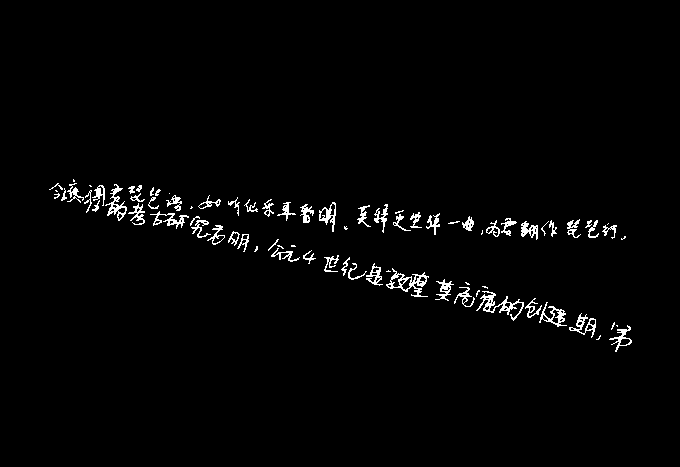 今夜闻君琵琶语，如听仙乐耳暂明。莫辞更坐弹一曲，为君翻作琵琶行。
的考古研究表明，公元4世纪是敦煌莫高窟的创建期，第